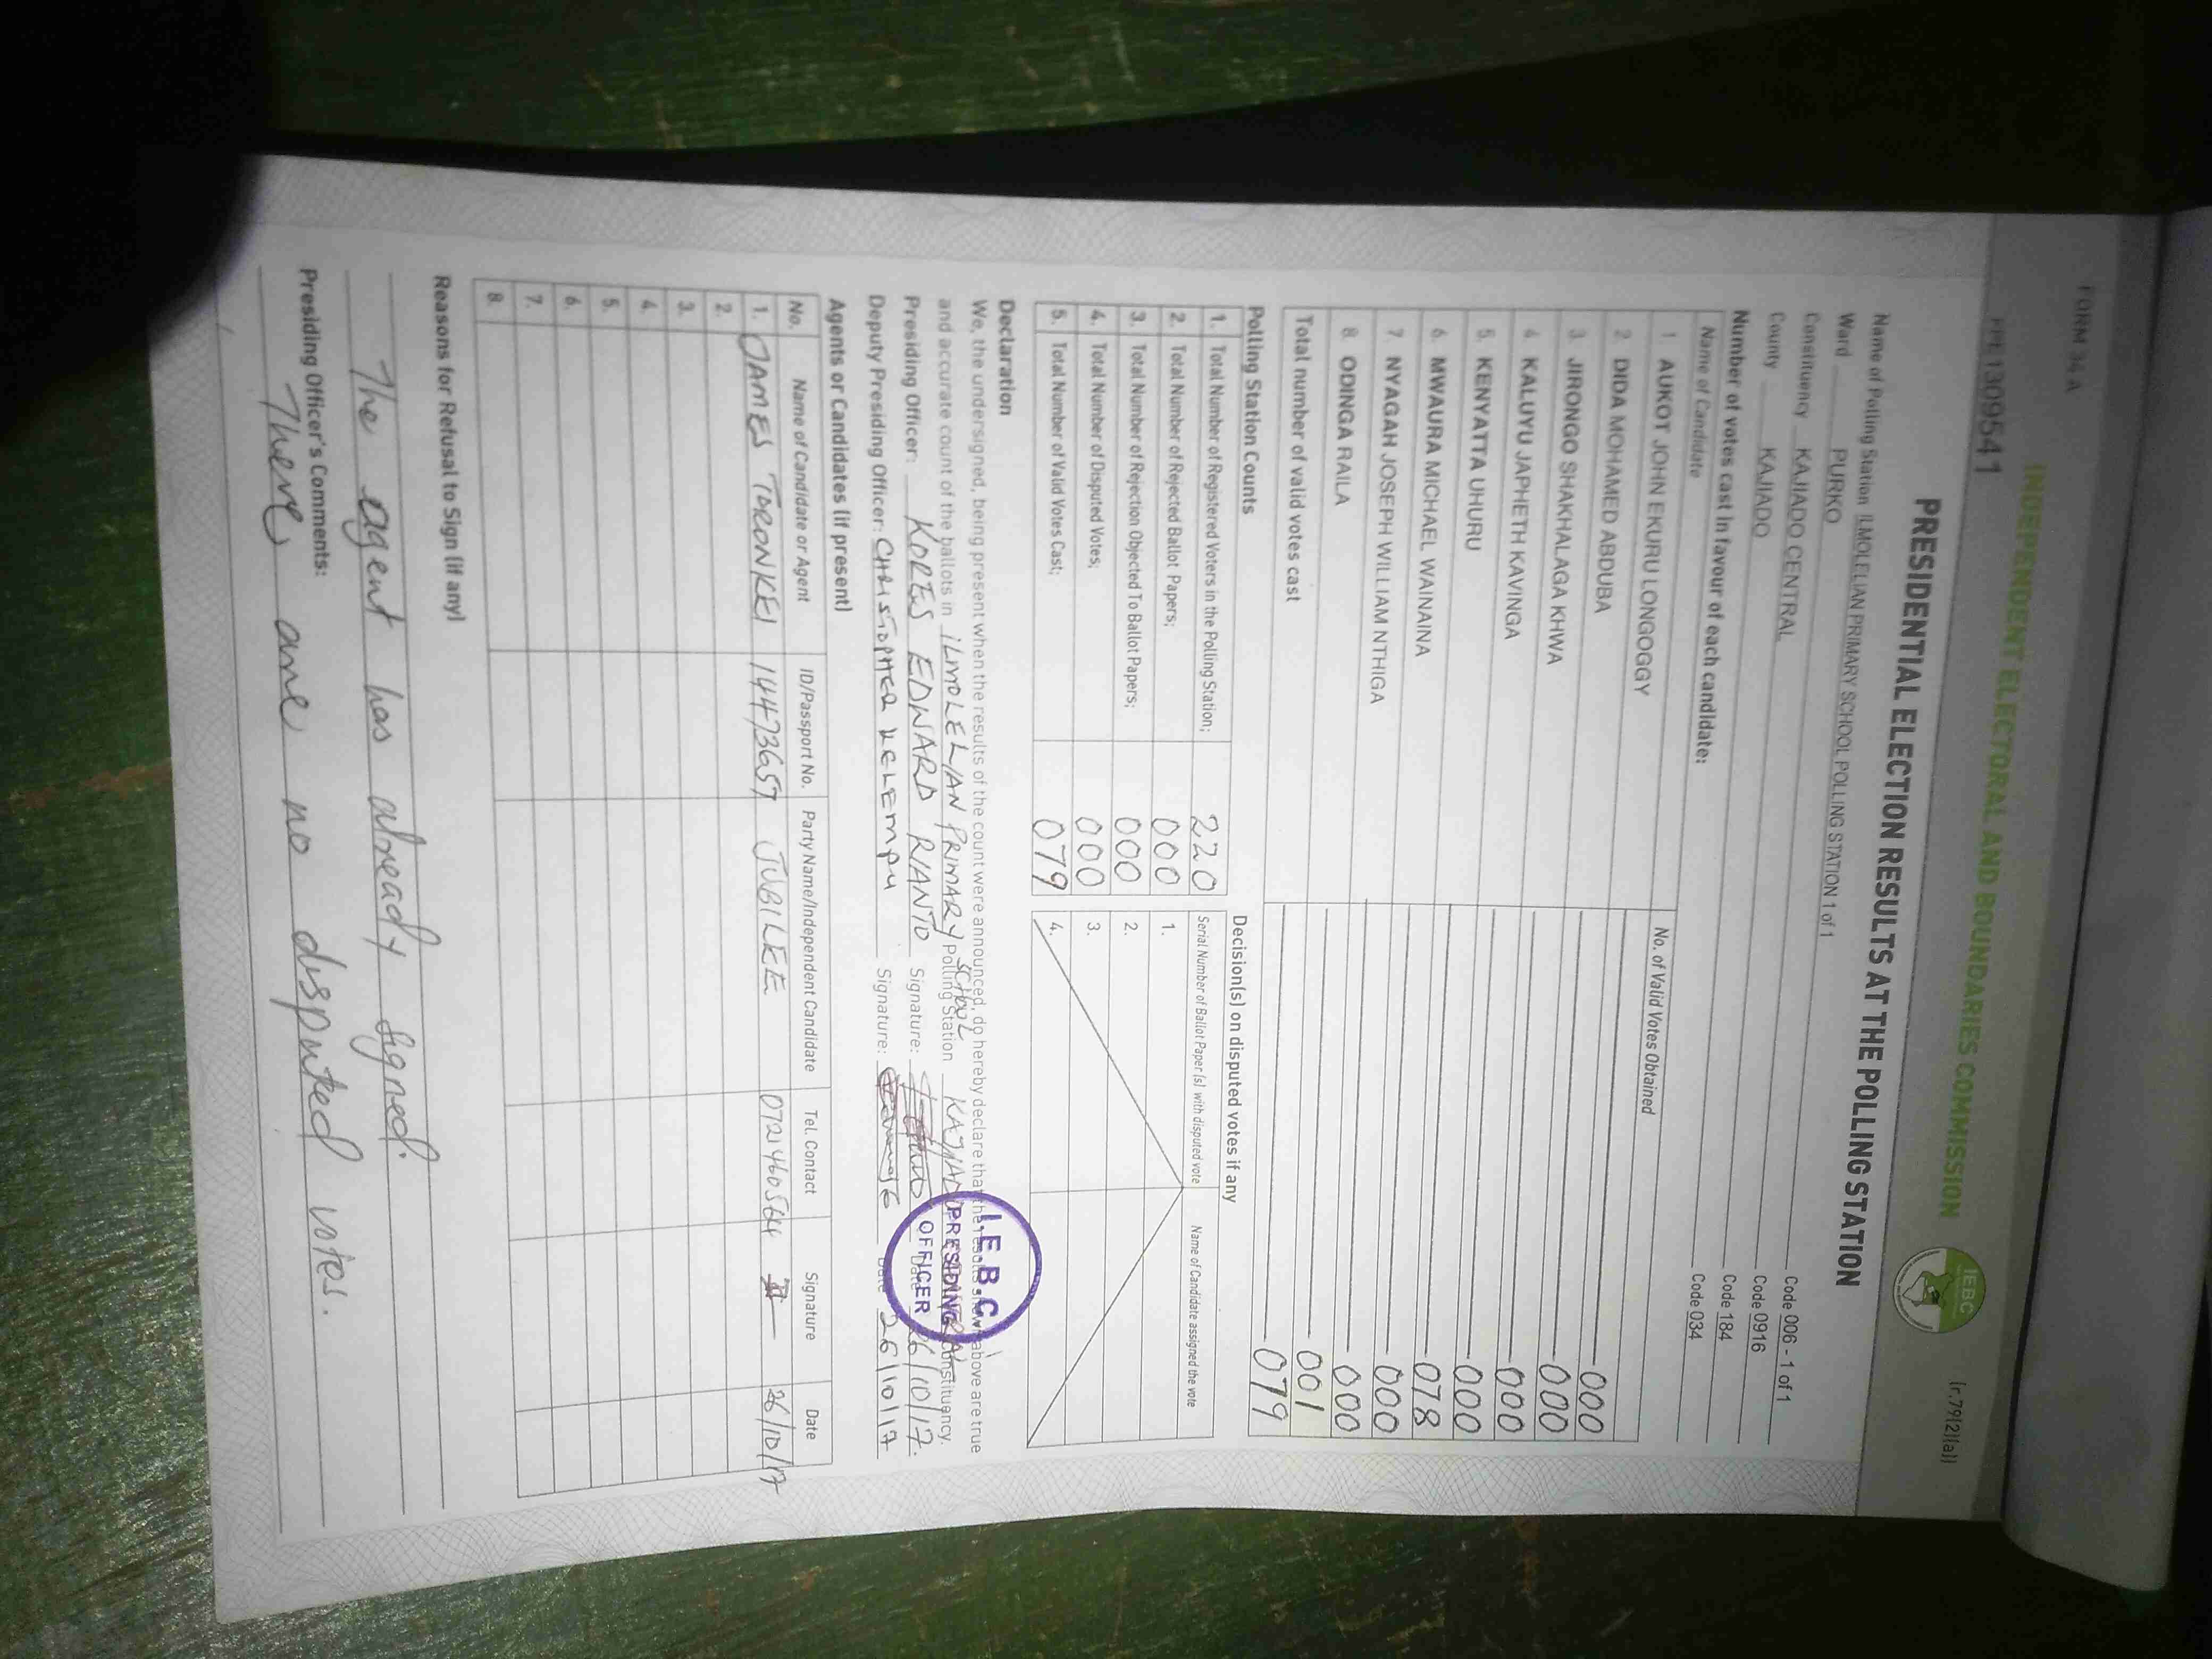 FORM 34 A
(r.79(2)(a))
INDEPENDENT ELECTORAL AND BOUNDARIES COMMISSION
IEBC
PRESIDENTIAL ELECTION RESULTS AT THE POLLING STATION
Name of Polling Station ILMOLELIAN PRIMARY SCHOOL POLLING STATION 1 of 1 Code 006 - 1 of 1
Ward PURKO Code 0916
Constituency KAJIADO CENTRAL Code 184
County KAJIADO Code 034
Number of votes cast in favour of each candidate:
Name of Candidate No. of Valid Votes Obtained
1 AUKOT JOHN EKURU LONGOGGY 000
2 DIDA MOHAMED ABDUBA 000
3 JIRONGO SHAKHALAGA KHWA 000
4 KALUYU JAPHETH KAVINGA 000
5. KENYATTA UHURU 078
6. MWAURA MICHAEL WAINAINA 000
7. NYAGAH JOSEPH WILLIAM NTHIGA 000
8. ODINGA RAILA 001
Total number of valid votes cast 079
Polling Station Counts
1. Total Number of Registered Voters in the Polling Station; 220
2. Total Number of Rejected Ballot Papers; 000
3. Total Number of Rejection Objected To Ballot Papers; 000
4. Total Number of Disputed Votes; 000
5. Total Number of Valid Votes Cast; 079
Decision(s) on disputed votes if any
Serial Number of Ballot Paper (s) with disputed vote Name of Candidate assigned the vote
1.
2.
3.
4.
Declaration
We, the undersigned, being present when the results of the count were announced, do hereby declare that the results shown above are true
and accurate count of the ballots in ILMOLELIAN PRIMARY SCHOOL Polling Station KAJIADO CENTRAL Constituency.
Presiding Officer: KORES EDWARD RIANTO Signature: Date 26/10/17.
Deputy Presiding Officer: CHRISTOPHER Signature: Date 26/10/17
I.E.B.C.
PRESIDING
OFFICER
Agents or Candidates (if present)
No. Name of Candidate or Agent ID/Passport No. Party Name/Independent Candidate Tel. Contact Signature Date
1. JAMES TORONKEI 14473657 JUBILEE 0721460564 26/10/17
2.
3.
4.
5.
6.
7.
8.
Reasons for Refusal to Sign (if any)
The agent has already signed.
Presiding Officer's Comments:
There are no disputed votes.